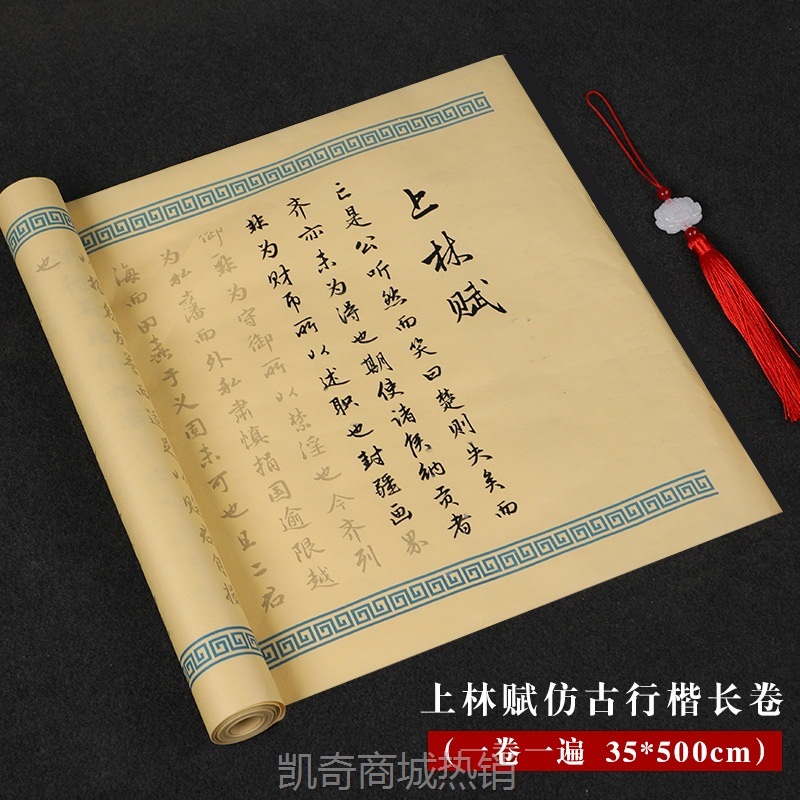 上林赋
亡是公听然而笑曰楚则失矣而
齐亦未为得也期使诸侯纳贡者
非为财币所以述职也封疆画界
御非为守御所以禁淫也今齐列
为私藩而外私肃慎捐国逾限越
海而田于义固未可也且二君
也
上林赋仿古行楷长卷
（一卷一遍 35*500cm）
凯奇商城热销